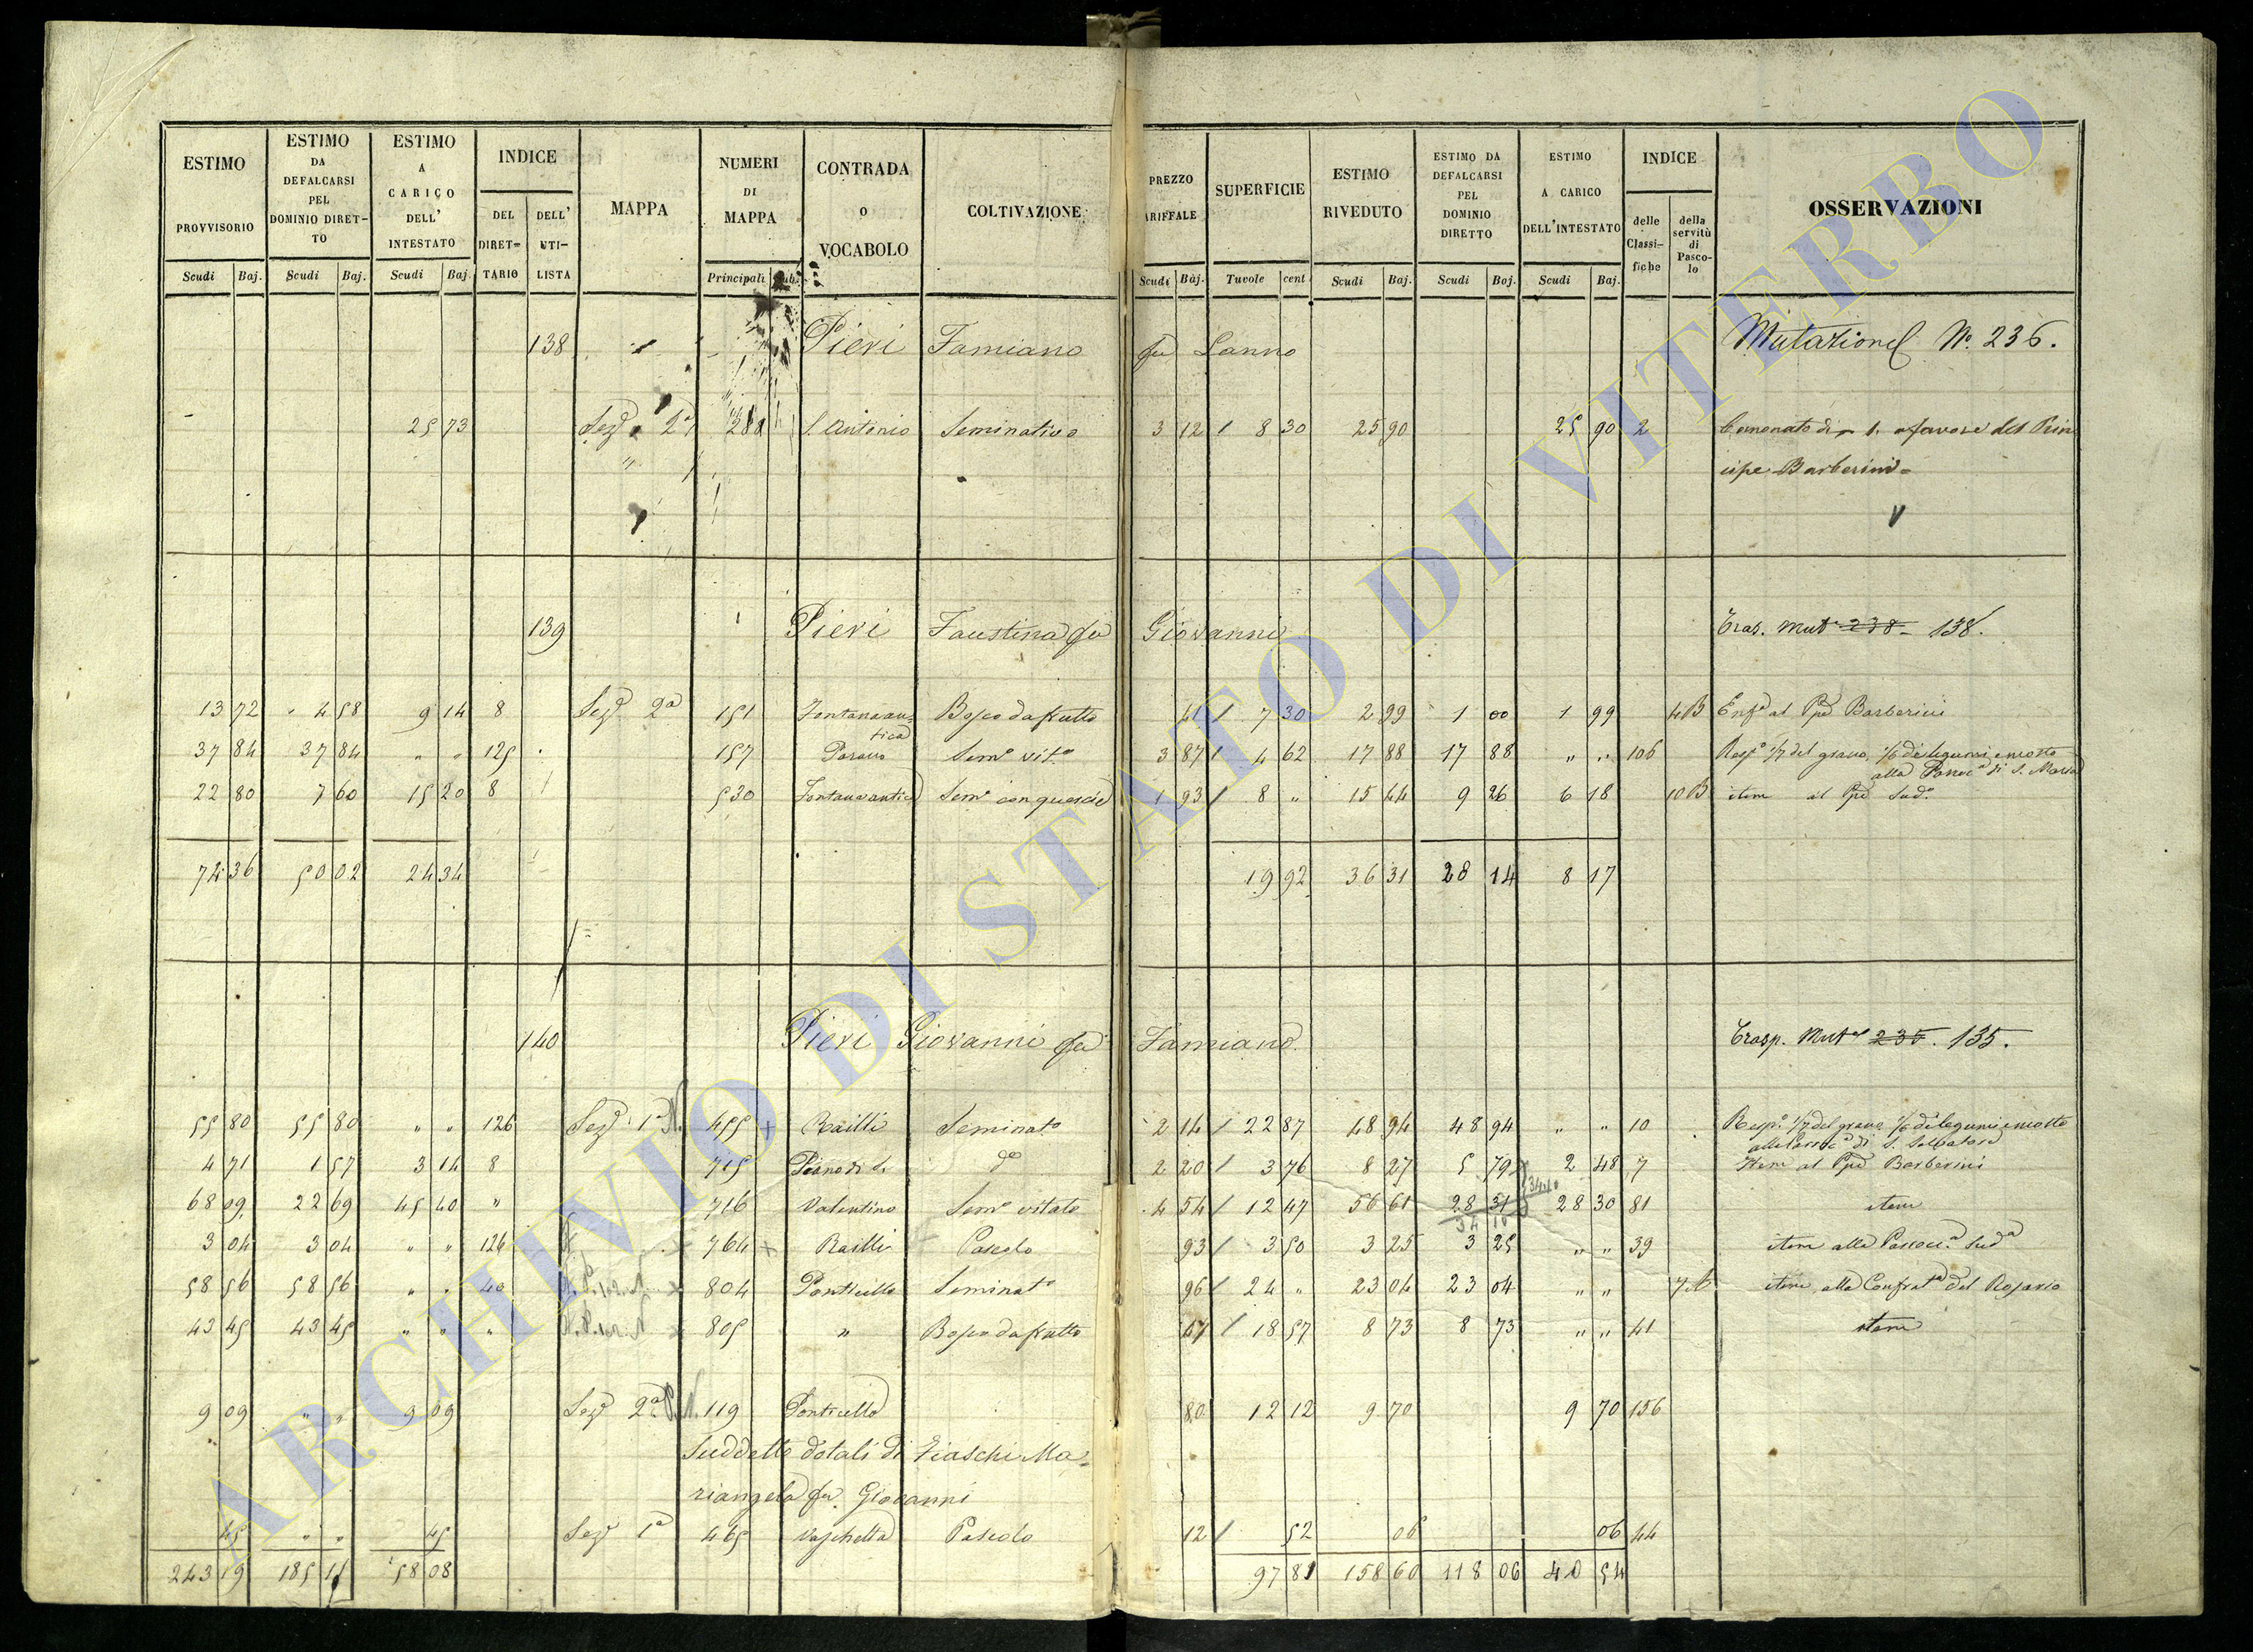 ESTIMO PROVVISORIO | ESTIMO DA DEFALCARSI PEL DOMINIO DIRETTO | ESTIMO A CARICO DELL' INTESTATO | INDICE | MAPPA | NUMERI DI MAPPA | CONTRADA o VOCABOLO | COLTIVAZIONE | PREZZO ARIFFALE | SUPERFICIE | ESTIMO RIVEDUTO | ESTIMO DA DEFALCARSI PEL DOMINIO DIRETTO | ESTIMO A CARICO DELL'INTESTATO | INDICE | OSSERVAZIONI
DEL DIRETTARIO | DELL' UTILISTA | delle Classifiche | della servitù di Pascolo
Scudi Baj. | Scudi Baj. | Scudi Baj. | Principali Sub. | Scudi Baj. | Tavole cent | Scudi Baj. | Scudi Baj. | Scudi Baj.
138 Pieri Famiano fu Lanno Mutazione N.º 236.
25 73 Sezº 2ª 288 S. Antonio Seminativo 3 12 / 8 30 25 90 25 90 2 Canonato di 1. a favore del Prin
cipe Barberini
139 Pieri Faustina fu Giovanni Tras. Mutº 238 - 138.
13 72 4 58 9 14 8 Sezº 2ª 151 Fontana antica Bosco da frutto 41 / 7 30 2 99 1 00 1 99 4B Enfº al Ppe Barberini
37 84 37 84 " " 125 157 Parano Semº vitº 3 87 / 4 62 17 88 17 88 " " 106 Rispº 1/7 del grano, 1/6 de legumi e mosto
alla Parrocª di S. Maria
22 80 7 60 15 20 8 530 Fontana antica Semº con quercie 1 93 / 8 " 15 44 9 26 6 18 10B item al Ppe Sudº
74 36 50 02 24 34 19 92 36 31 28 14 8 17
140 Pieri Giovanni fu Famiano Trasp. Mutº 235. 135.
55 80 55 80 " " 126 Sezº 1ª N. 455 + Railli Seminatº 2 14 / 22 87 48 94 48 94 " " 10 Rispº 1/7 del grano 1/6 de legumi e mosto
alla Parrocª di S. Salvatore
4 71 1 57 3 14 8 715 Piano di S. dº 2 20 / 3 76 8 27 5 79 2 48 7 Item al Ppe Barberini
34.10
68 09 22 69 45 40 " 716 Valentino Semº vitato 4 54 / 12 47 56 61 28 31 28 30 81 item
34 10
3 04 3 04 " " 126 764 + Railli Pascolo 93 / 3 50 3 25 3 25 " " 39 item alla Parrocª Sudª
58 56 58 56 " " 40 804 Ponticello Seminatº 96 / 24 " 23 04 23 04 " " item alla Confratª del Rosario
43 45 43 45 " " " 805 " Bosco da frutto 47 / 18 57 8 73 8 73 " " 41 item
9 09 " " 9 09 Sezº 2ª 119 Ponticello 80 12 12 9 70 9 70 156
Suddetto dotali di Fiaschi Ma=
riangela fu Giovanni
45 " " 45 Sezº 1ª 465 Vaschetta Pascolo 12 / 52 06 06 44
243 19 185 11 58 08 97 81 158 60 118 06 40 54
ARCHIVIO DI STATO DI VITERBO